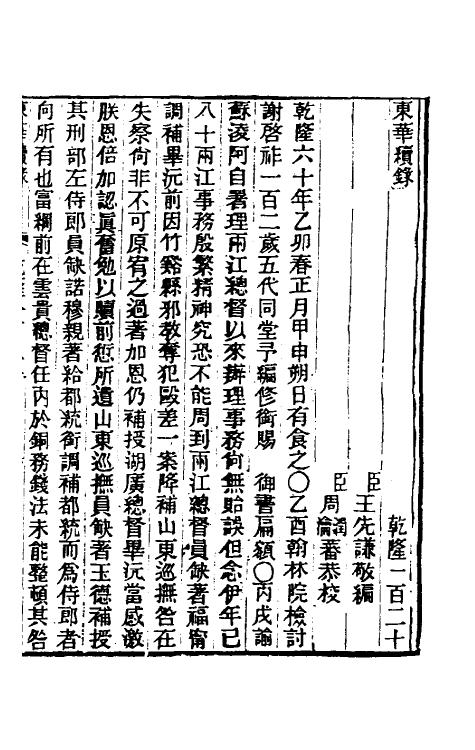 東華續錄　乾隆一百二十
臣王先謙敬編
臣周潤蕃瀹蕃恭校
乾隆六十年乙卯春正月甲申朔日有食之〇乙酉翰林院檢討
謝啓祚一百二歲五代同堂予編修銜賜　御書扁額〇丙戌諭
蘇淩阿自署理兩江總督以來辦理事務尙無貽誤但念伊年已
八十兩江事務殷繁精神究恐不能周到兩江總督員缺著福甯
調補畢沅前因竹谿縣邪教奪犯毆差一案降補山東巡撫咎在
失察尙非不可原宥之過著加恩仍補授湖廣總督畢沅當感激
朕恩倍加認眞奮勉以贖前愆所遺山東巡撫員缺著玉德補授
其刑部左侍郎員缺諾穆親著給都統銜調補都統而爲侍郎者
向所有也富綱前在雲貴總督任內於銅務錢法未能整頓其咎